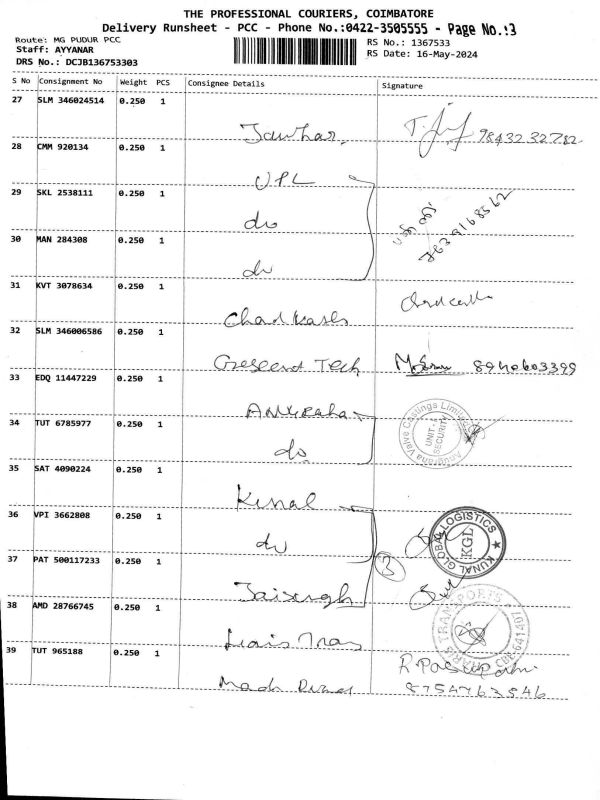 THE PROFESSIONAL COURIERS, COIMBATORE
Delivery Runsheet - PCC - Phone No.:0422-3505555 - Page No.:3
Route: MG PUDUR PCC
Staff: AYYANAR
DRS No.: DCJB136753303
RS No.: 1367533
RS Date: 16-May-2024
S No Consignment No Weight PCS Consignee Details Signature
27 SLM 346024514 0.250 1
Jawhar. 98432 32782
28 CMM 920134 0.250 1
UPL
29 SKL 2538111 0.250 1
do 7639168562
30 MAN 284308 0.250 1
do
31 KVT 3078634 0.250 1
32 SLM 346006586 0.250 1
Crescend Tech 8940603399
33 EDQ 11447229 0.250 1
34 TUT 6785977 0.250 1
do Valve Castings Limited UNIT-  SECURITY
35 SAT 4090224 0.250 1
Kunal
36 VPI 3662808 0.250 1
do KUNAL GLOBAL LOGISTICS KGL
37 PAT 500117233 0.250 1
3
38 AMD 28766745 0.250 1
TRANSPORTS CBE-641407
39 TUT 965188 0.250 1
8754763546